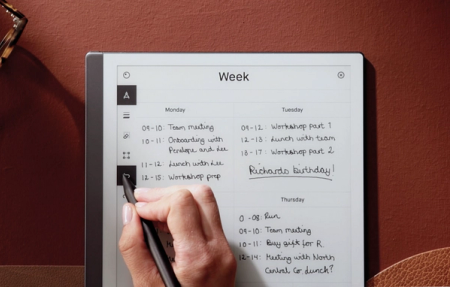 Week
Monday
09-10: Team meeting
10-11: Onboarding with
Penelope and Lee
11-12: Lunch with Lee
12-15: Workshop prep
Tuesday
09-12: Workshop part 1
12-13: Lunch with team
13-17: Workshop part 2
Richards birthday!
Thursday
-08: Run
09-10: Team meeting
10-11: Buy gift for R.
12-14: Meeting with North
Central Co lunch?